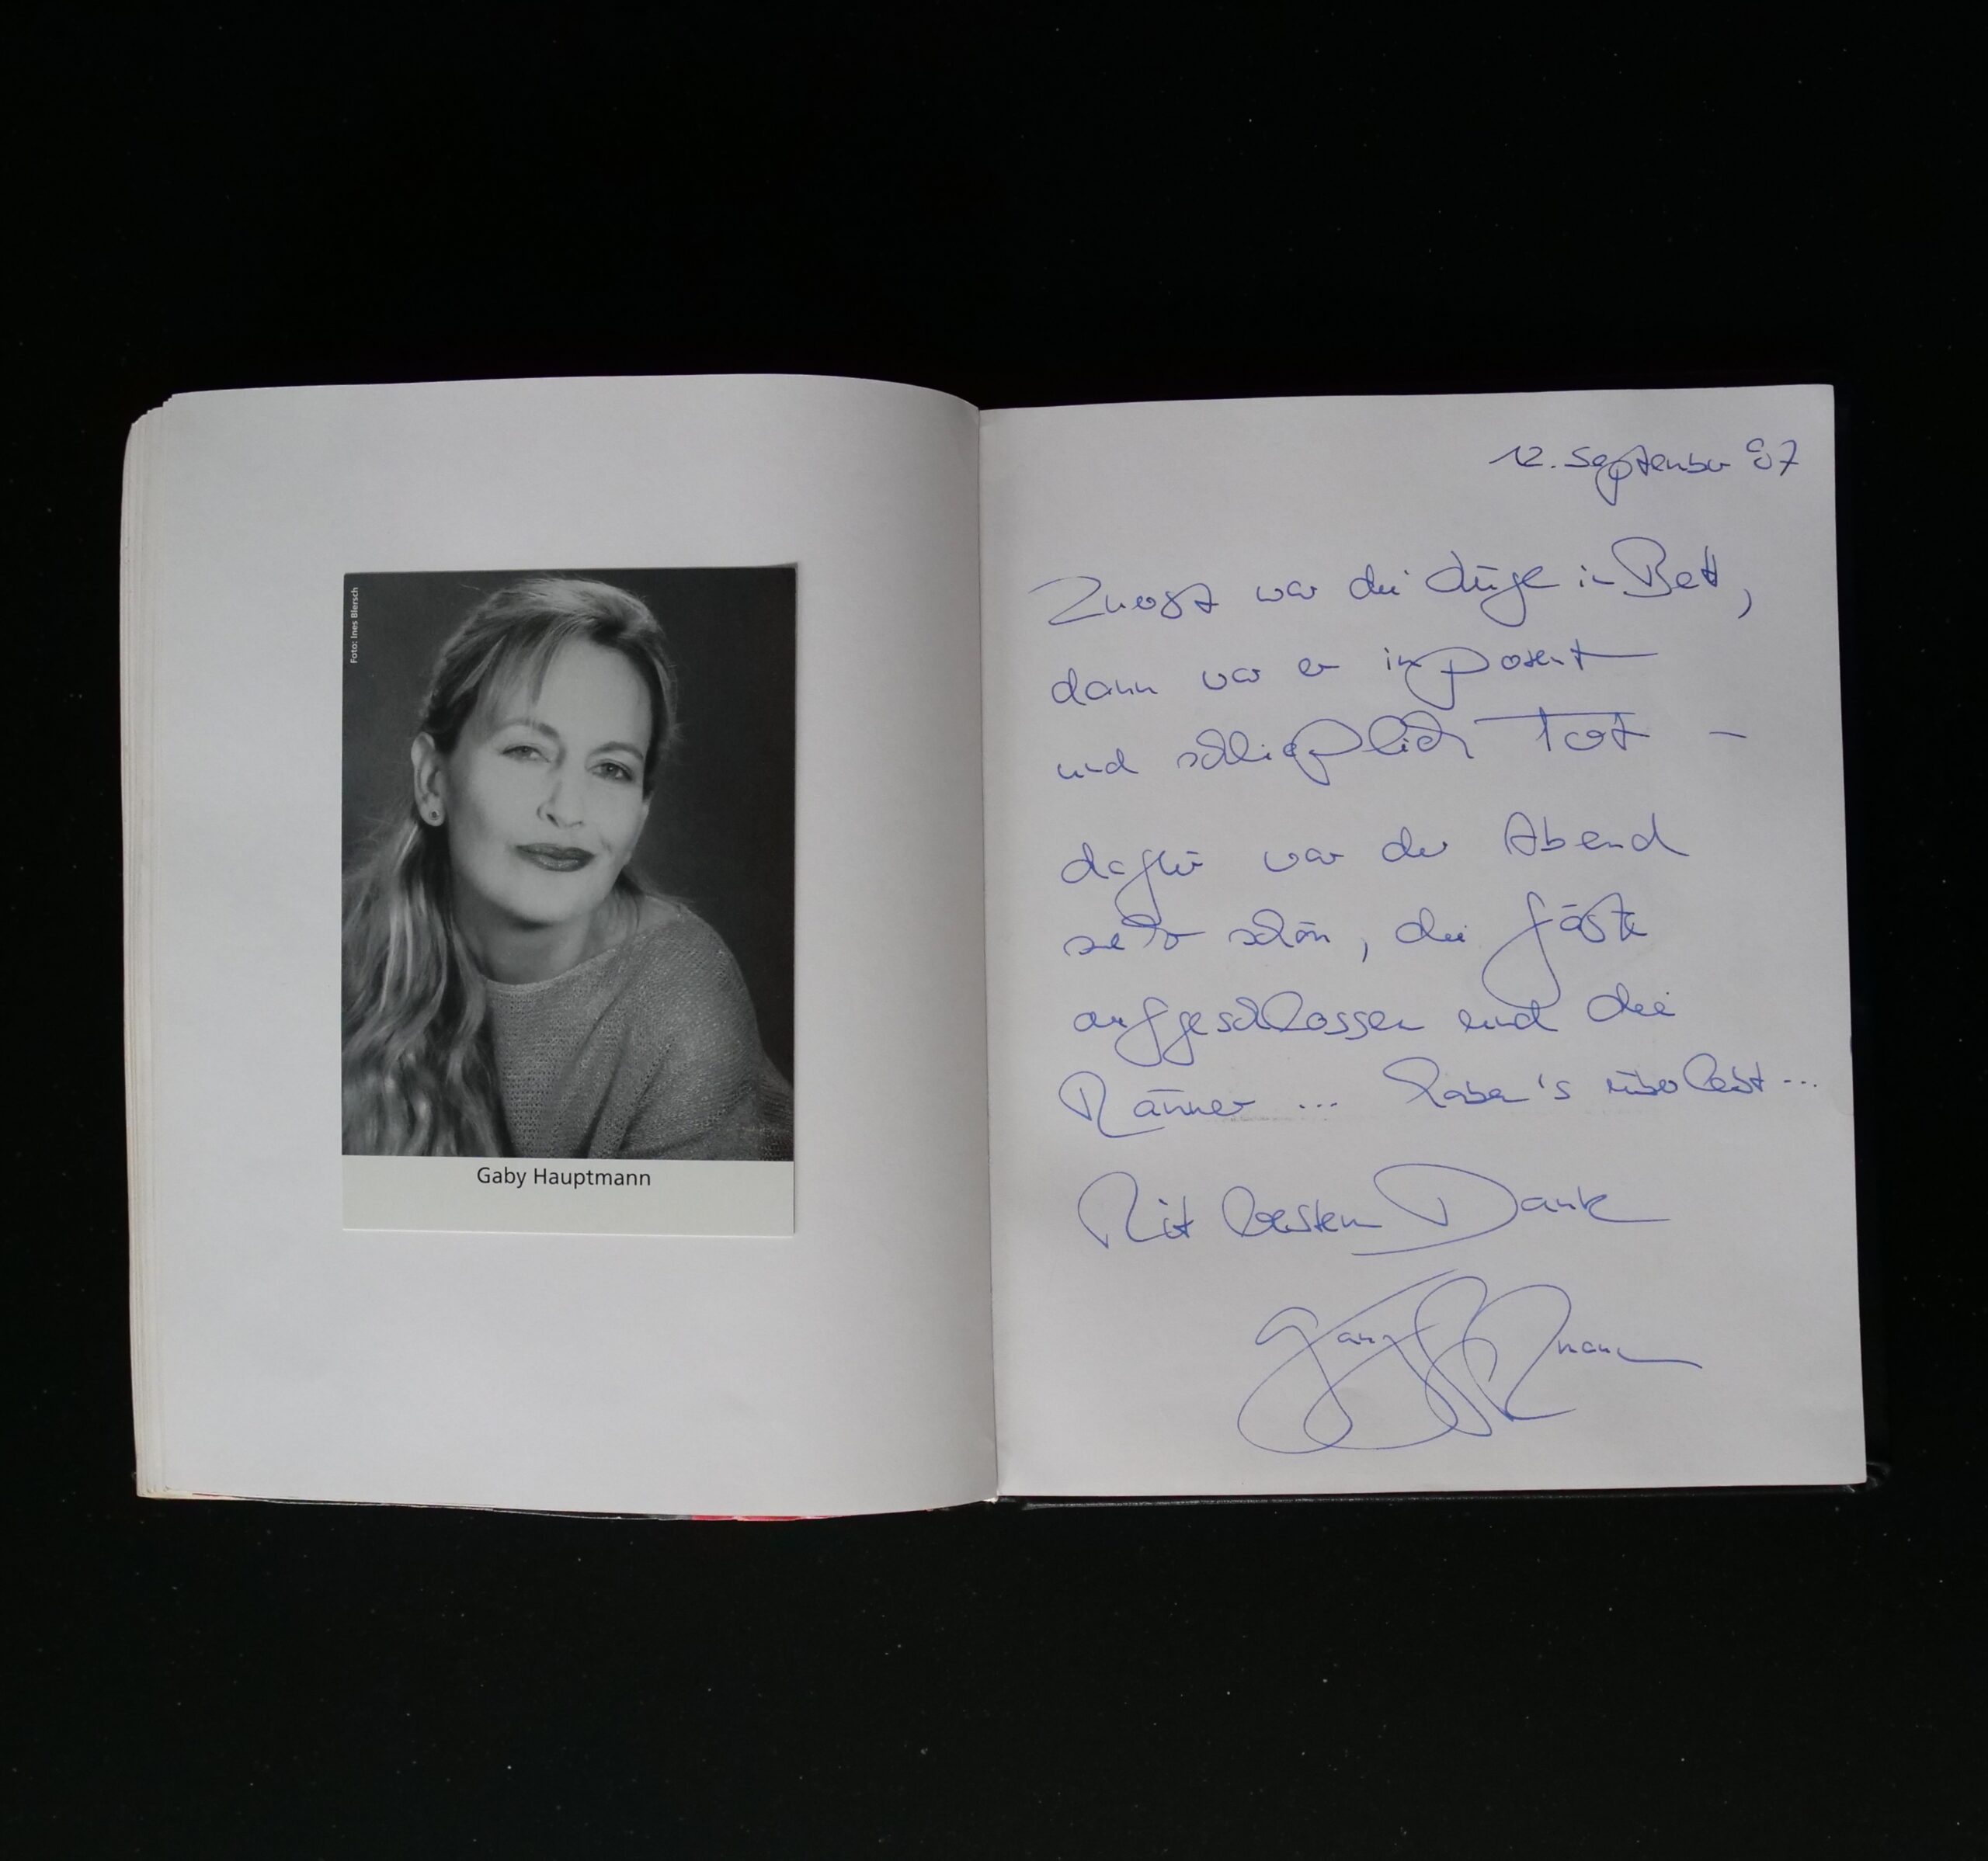 Foto: Ines Blersch
Gaby Hauptmann
12. September 97
Zuerst war die Lüge im Bett,
dann war er impotent
und schließlich Tot –
dafür war der Abend
sehr schön, die Gäste
aufgeschlossen und die
Männer ... haben's überlebt ...
Mit bestem Dank
Gaby Hauptmann